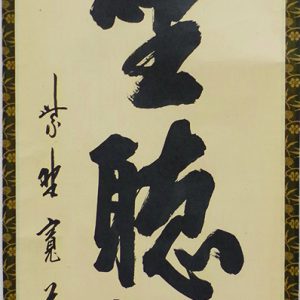 坐聴
紫野寛